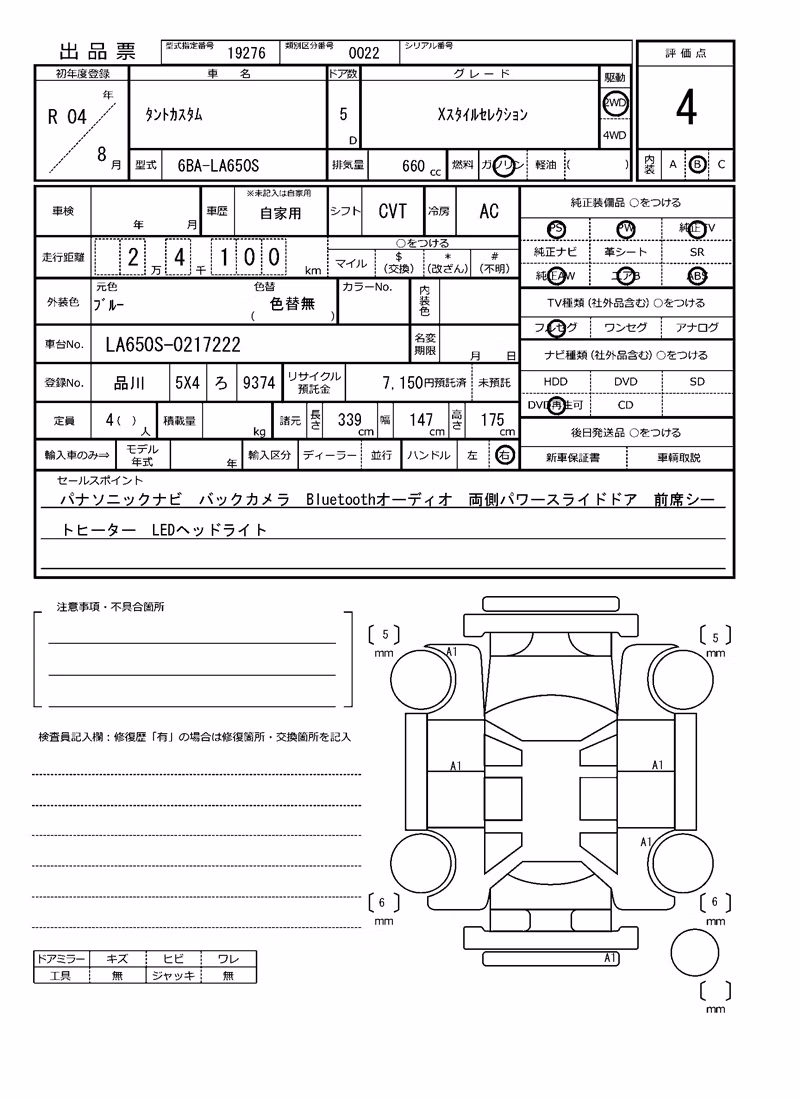 出品票 型式指定番号 19276 類別区分番号 0022 シリアル番号
評価点
4
内装 A B C
初年度登録 車名 ドア数 グレード 駆動
R 04 年 8 月 タントカスタム 5 D Xスタイルセレクション 2WD
4WD
型式 6BA-LA650S 排気量 660 cc 燃料 ガソリン 軽油 ( )
車検 年 月 車歴 ※未記入は自家用 自家用 シフト CVT 冷房 AC
走行距離 2 万 4 千 1 0 0 km
○をつける
マイル $(交換) *(改ざん) #(不明)
外装色 元色 ブルー 色替 ( 色替無 ) カラーNo. 内装色
車台No. LA650S-0217222 名変期限 月 日
登録No. 品川 5X4 ろ 9374 リサイクル預託金 7,150円預託済 未預託
定員 4( ) 人 積載量 kg 諸元 長さ 339 cm 幅 147 cm 高さ 175 cm
輸入車のみ⇒ モデル年式 年 輸入区分 ディーラー 並行 ハンドル 左 右
純正装備品 ○をつける
PS PW 純正TV
純正ナビ 革シート SR
純正AW エアB ABS
TV種類(社外品含む)○をつける
フルセグ ワンセグ アナログ
ナビ種類(社外品含む)○をつける
HDD DVD SD
DVD再生可 CD
後日発送品 ○をつける
新車保証書 車輌取説
セールスポイント
パナソニックナビ バックカメラ Bluetoothオーディオ 両側パワースライドドア 前席シー
トヒーター LEDヘッドライト
注意事項・不具合箇所
検査員記入欄：修復歴「有」の場合は修復箇所・交換箇所を記入
ドアミラー キズ ヒビ ワレ
工具 無 ジャッキ 無
5 mm
5 mm
A1
A1
A1
A1
6 mm
6 mm
A1
mm